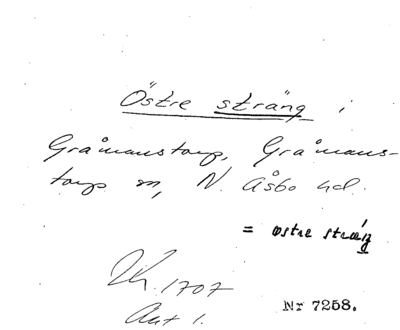 Östre sträng i
Gråmanstorp, Gråmans-
torp sn, N. Åsbo hd.
= östre sträng
1707
Akt 1.
Nr 7258.